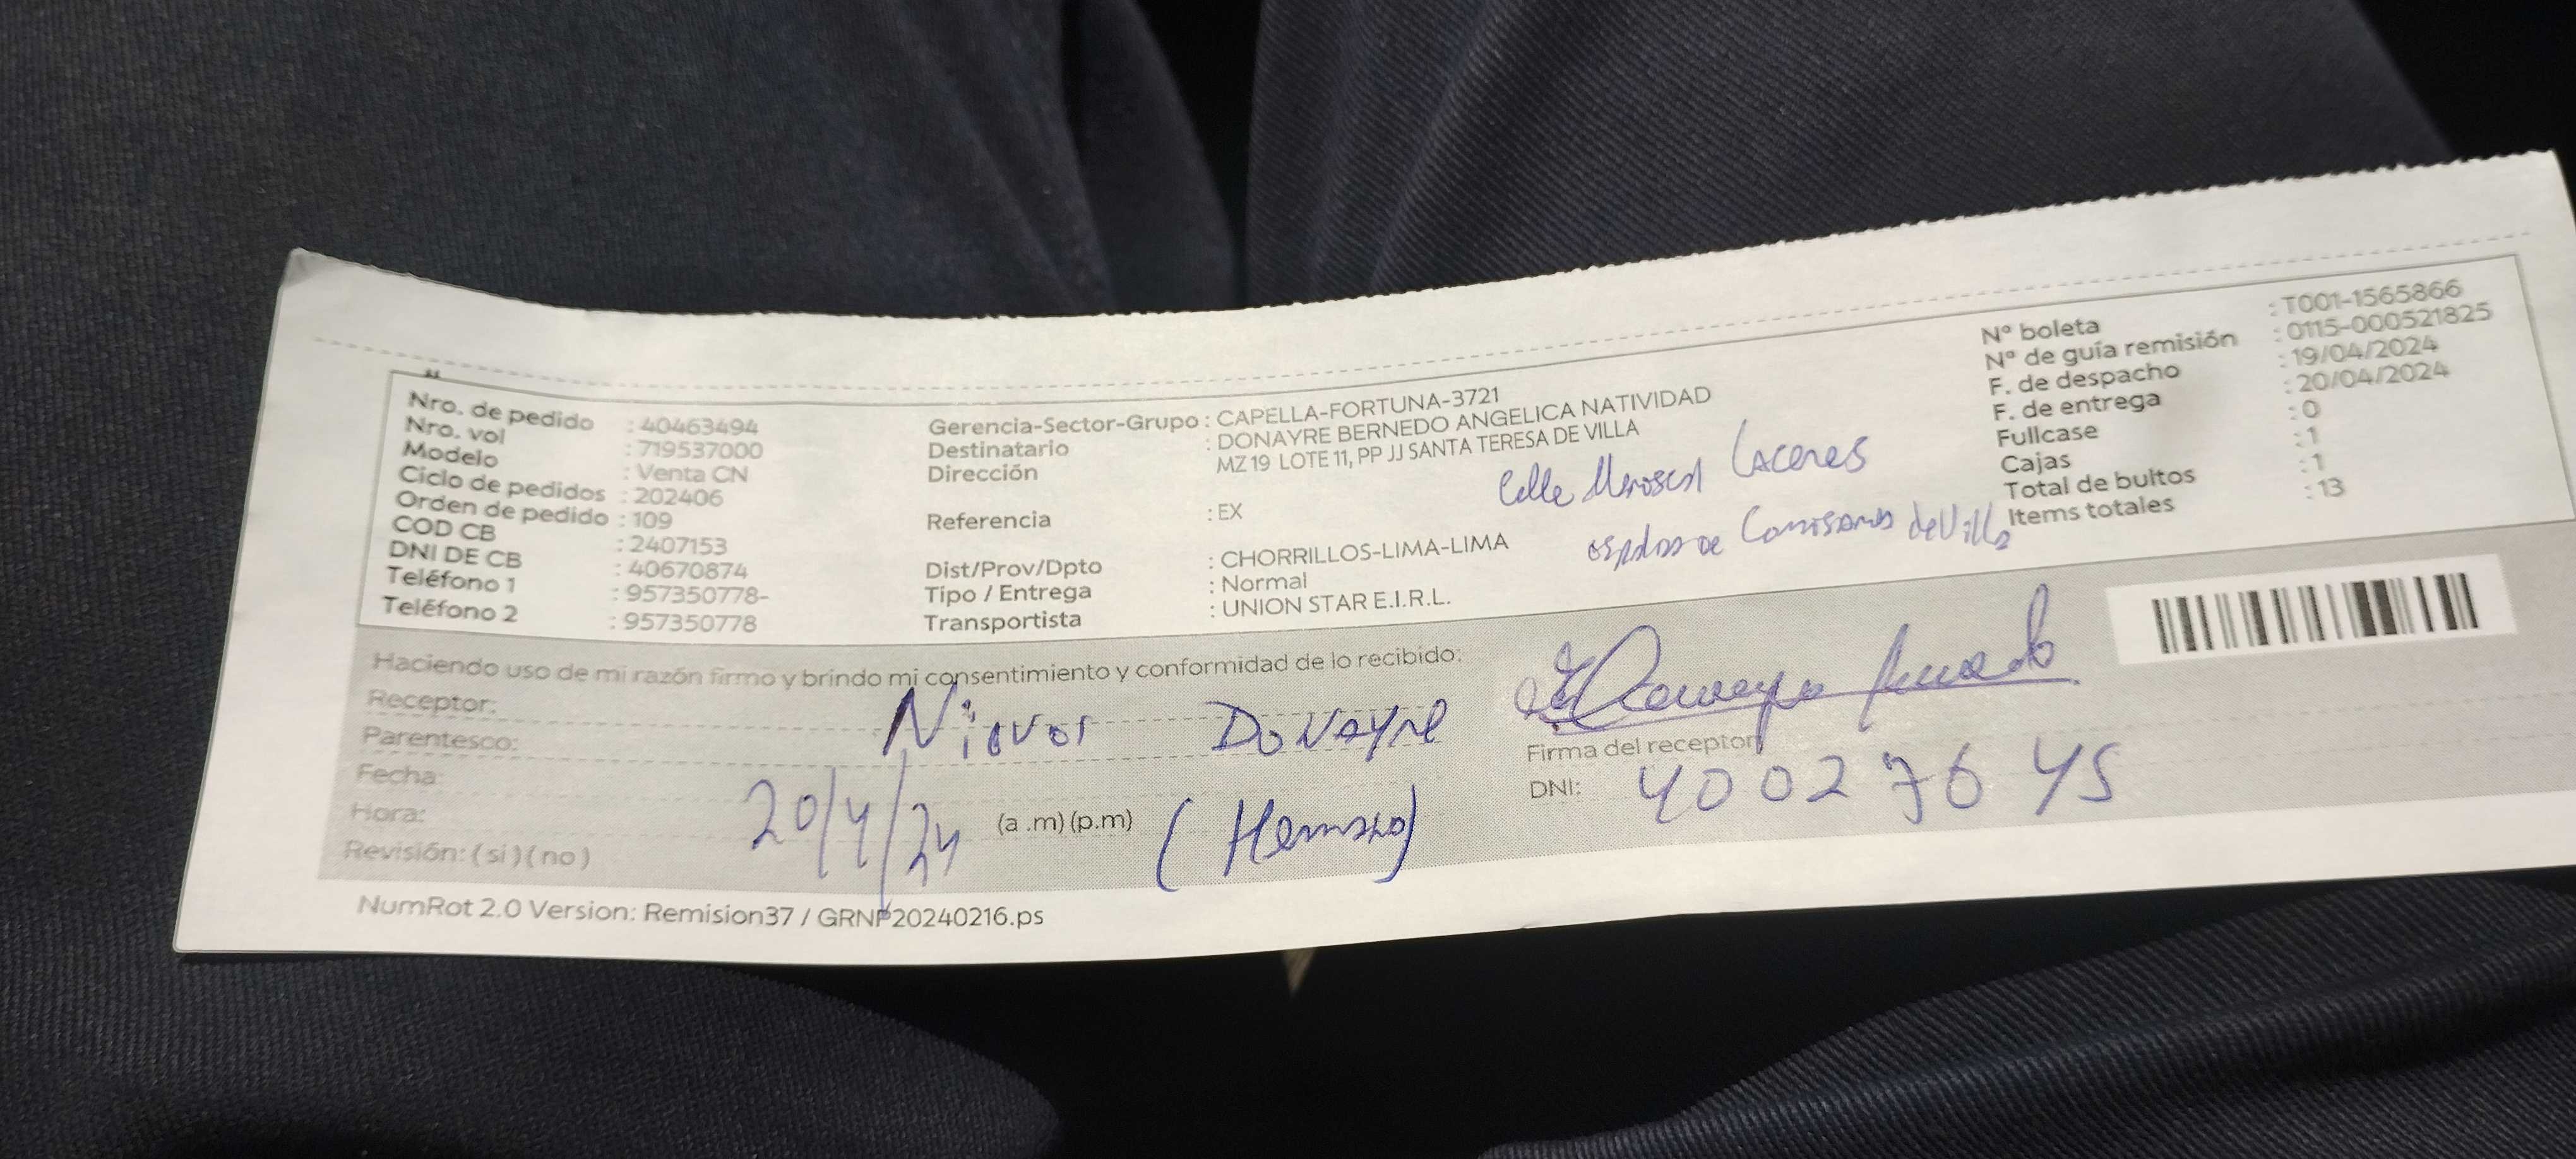 Nro. de pedido : 40463494
Nro. vol : 719537000
Modelo : Venta CN
Ciclo de pedidos : 202406
Orden de pedido : 109
COD CB : 2407153
DNI DE CB : 40670874
Teléfono 1 : 957350778-
Teléfono 2 : 957350778
Gerencia-Sector-Grupo : CAPELLA-FORTUNA-3721
Destinatario : DONAYRE BERNEDO ANGELICA NATIVIDAD
Dirección MZ 19 LOTE 11, PP JJ SANTA TERESA DE VILLA
Calle Mariscal Caceres
Referencia : EX
Comisaria de Villa
Dist/Prov/Dpto : CHORRILLOS-LIMA-LIMA
Tipo / Entrega : Normal
Transportista : UNION STAR E.I.R.L.
N° boleta : T001-1565866
N° de guía remisión : 0115-000521825
F. de despacho : 19/04/2024
F. de entrega : 20/04/2024
Fullcase : 0
Cajas : 1
Total de bultos : 1
Items totales : 13
Haciendo uso de mi razón firmo y brindo mi consentimiento y conformidad de lo recibido:
Receptor: DONAYRE
Parentesco:
Fecha: 20/4/24
Hora: (a .m) (p.m) (Hermano)
Revisión: ( si ) ( no )
Firma del receptor
DNI: 40027645
NumRot 2.0 Version: Remision37 / GRNP20240216.ps